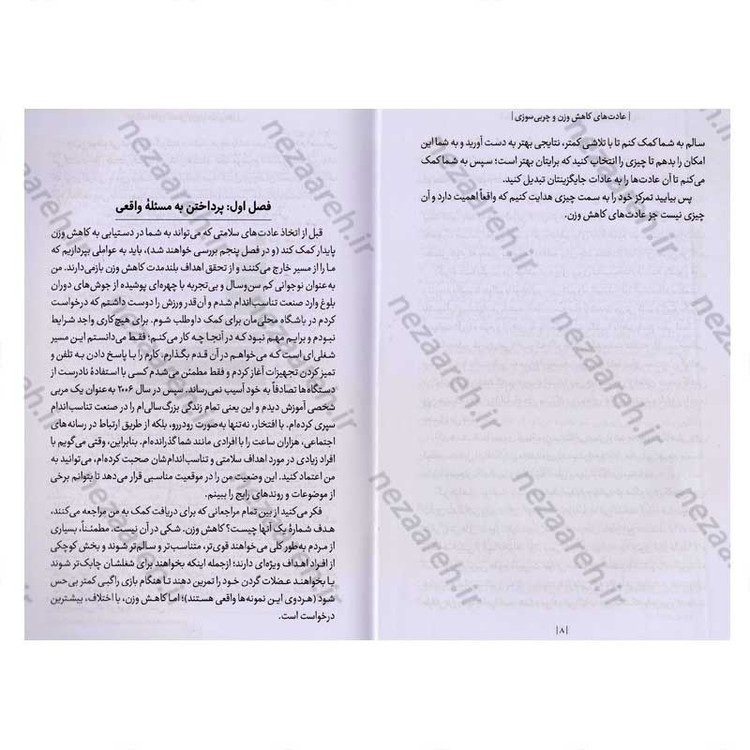 | عادت‌های کاهش وزن و چربی‌سوزی |
سالم به شما کمک کنم تا با تلاشی کمتر، نتایجی بهتر به دست آورید و به شما این
امکان را بدهم تا چیزی را انتخاب کنید که برایتان بهتر است؛ سپس به شما کمک
می‌کنم تا آن عادت‌ها را به عادات جایگزینتان تبدیل کنید.
پس بیایید تمرکز خود را به سمت چیزی هدایت کنیم که واقعاً اهمیت دارد و آن
چیزی نیست جز عادت‌های کاهش وزن.
| ۸ |
فصل اول: پرداختن به مسئلهٔ واقعی
قبل از اتخاذ عادت‌های سلامتی که می‌تواند به شما در دستیابی به کاهش وزن
پایدار کمک کند (و در فصل پنجم بررسی خواهند شد)، باید به عواملی بپردازیم که
ما را از مسیر خارج می‌کنند و از تحقق اهداف بلندمدت کاهش وزن بازمی‌دارند. من
به‌عنوان نوجوانی کم سن‌وسال و بی‌تجربه با چهره‌ای پوشیده از جوش‌های دوران
بلوغ وارد صنعت تناسب‌اندام شدم و آن‌قدر ورزش را دوست داشتم که درخواست
کردم در باشگاه محلی‌مان برای کمک داوطلب شوم. برای هیچ‌کاری واجد شرایط
نبودم و برایم مهم نبود که در آنجا چه کار می‌کنم؛ فقط می‌دانستم این مسیر
شغلی‌ای است که می‌خواهم در آن قدم بگذارم. کارم را با پاسخ دادن به تلفن و
تمیز کردن تجهیزات آغاز کردم و فقط مطمئن می‌شدم کسی با استفادهٔ نادرست از
دستگاه‌ها تصادفاً به خود آسیب نمی‌رساند. سپس در سال ۲۰۰۶ به‌عنوان یک مربی
شخصی آموزش دیدم و این یعنی تمام زندگی بزرگ‌سالی‌ام را در صنعت تناسب‌اندام
سپری کرده‌ام. با افتخار، نه‌تنها به‌صورت رودررو، بلکه از طریق ارتباط در رسانه‌های
اجتماعی، هزاران ساعت را با افرادی مانند شما گذرانده‌ام. بنابراین، وقتی می‌گویم با
افراد زیادی در مورد اهداف سلامتی و تناسب‌اندام‌شان صحبت کرده‌ام، می‌توانید به
من اعتماد کنید. این وضعیت من را در موقعیت مناسبی قرار می‌دهد تا بتوانم برخی
از موضوعات و روندهای رایج را ببینم.
فکر می‌کنید از بین تمام مراجعانی که برای دریافت کمک به من مراجعه می‌کنند،
هدف شمارهٔ یک آنها چیست؟ کاهش وزن. شکی در آن نیست. مطمئناً، بسیاری
از مردم به‌طور کلی می‌خواهند قوی‌تر، متناسب‌تر و سالم‌تر شوند و بخش کوچکی
از افراد اهداف ویژه‌ای دارند؛ ازجمله اینکه بخواهند برای شغلشان چابک‌تر شوند
یا بخواهند عضلات گردن خود را تمرین دهند تا هنگام بازی راگبی کمتر بی حس
شود (هر دوی این نمونه‌ها واقعی هستند)؛ اما کاهش وزن، با اختلاف، بیشترین
درخواست است.
nezaareh.ir
nezaareh.ir
nezaareh.ir
nezaareh.ir
nezaareh.ir
nezaareh.ir